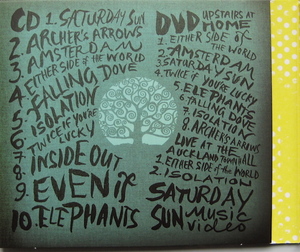 CD 1. SATURDAY SUN
2. ARCHER'S ARROWS
3. AMSTERDAM
4. EITHER SIDE OF THE WORLD
5. FALLING DOVE
6. ISOLATION
7. TWICE IF YOU'RE LUCKY
8. INSIDE OUT
9. EVEN IF
10. ELEPHANTS
DVD UPSTAIRS AT HOME
1. EITHER SIDE OF THE WORLD
2. AMSTERDAM
3. SATURDAY SUN
4. TWICE IF YOU'RE LUCKY
5. ELEPHANTS
6. FALLING DOVE
7. ISOLATION
8. ARCHER'S ARROWS
LIVE AT THE
AUCKLAND TOWN HALL
1. EITHER SIDE OF THE WORLD
2. ISOLATION
SATURDAY
SUN Music
Video